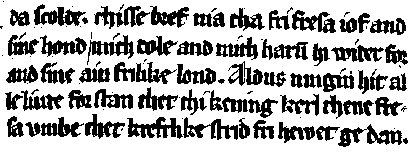 da scolde. thisse bref nia tha fri fresa iof and
sine hond mith dole and mith hari hi wider for
and sine ain frilike lond. Aldus mugin hit al
le liuwe forstan thet thi kening kerl thene fre-
sa vmbe thet krefthke strid fri hewet ge dan.